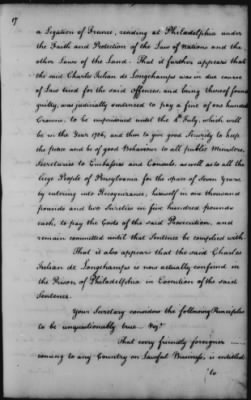 17
a Legation of France, residing at Philadelphia under
the Faith and Protection of the Law of Nations and the
other Laws of the Land. That it further appears that
the said Charles Julian de Longchamps was in due course
of Law tried for the said offence, and being thereof found
guilty, was judicially sentenced to pay a fine of one hundred
Crowns, to be imprisoned until the 4th July, which will
be in the Year 1786, and then to give good Security to keep
the peace and be of good Behaviour to all public Ministers,
Secretaries to Embassies and Consuls, as well as to all the
liege People of Pennsylvania for the space of Seven Years
by entering into Recognizance, himself in one thousand
pounds and two Sureties in five hundred pounds
each, to pay the Costs of the said Prosecution, and
remain committed until this Sentence be complied with
That it also appear that the said Charles
Julian de Longchamps is now actually confined in
the Prison of Philadelphia in Execution of the said
Sentence.
Your Secretary considers the following Principles
to be unquestionably true
That every friendly foreigner
coming to any Country on Lawful Business, is entitled
to